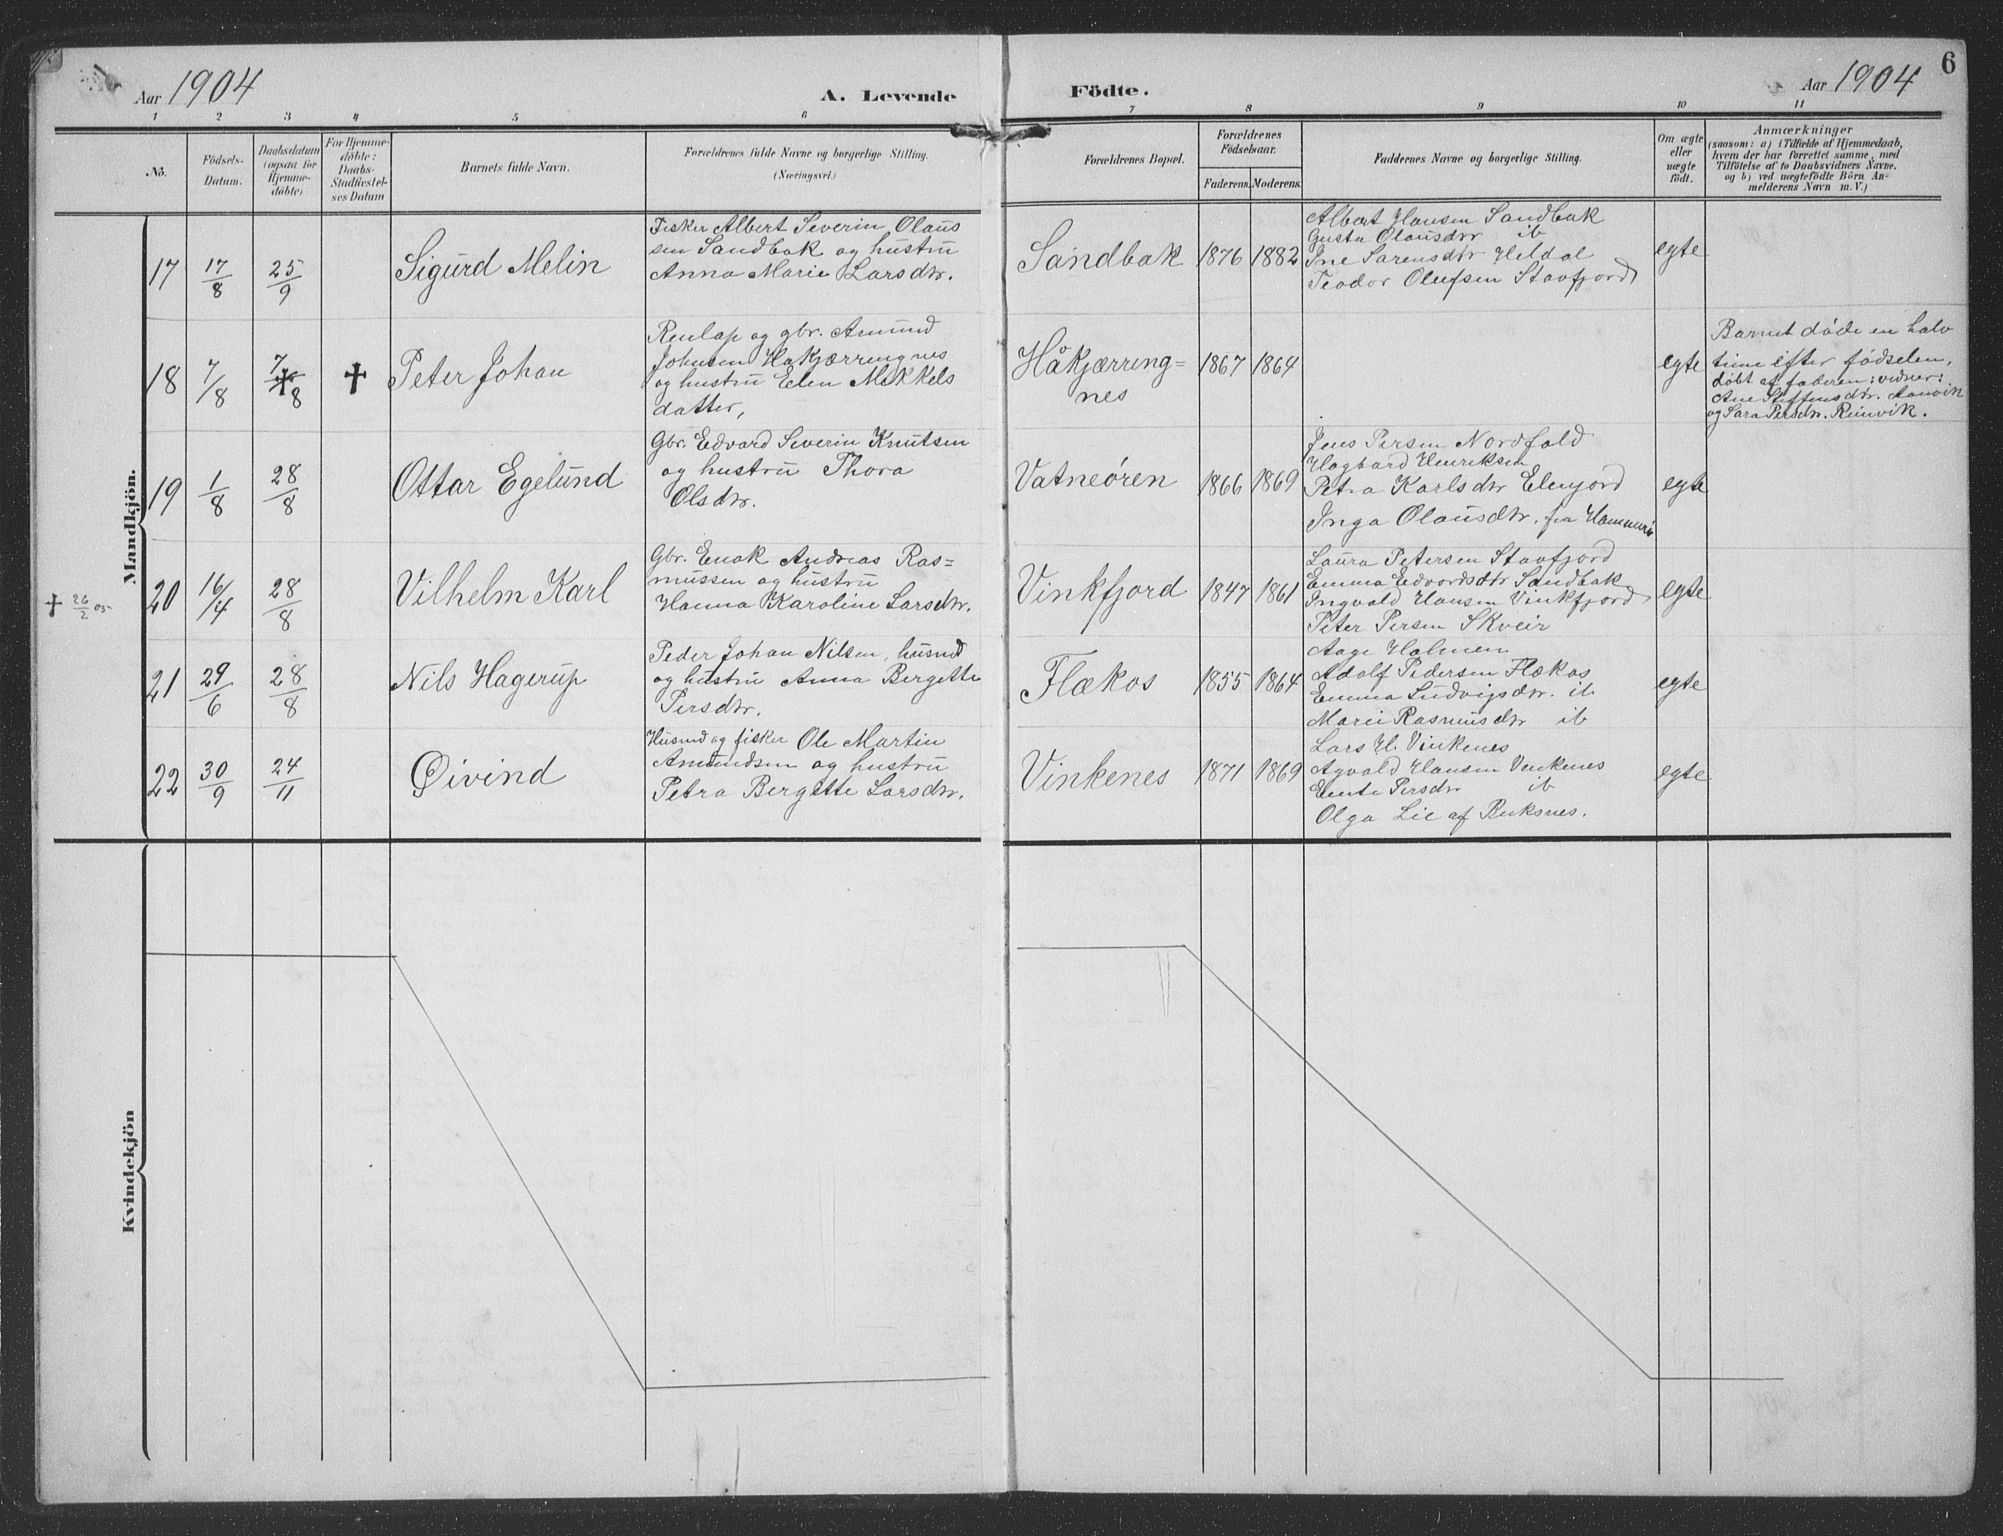 6
Aar 1904
A. Levende Födte.
Aar 1904
1 2 3 4 5 6 7 8 9 10 11
No.
Födsels-
Datum.
Daabsdatum
(ogsaa for
Hjemme-
döbte)
For Hjemme-
döbte:
Daabs-
Stadfæstel-
ses Datum
Barnets fulde Navn.
Forældrenes fulde Navne og borgerlige Stilling.
(Næringsvei.)
Forældrenes Bopæl.
Forældrenes
Födselsaar.
Faderens. Moderens.
Faddernes Navne og borgerlige Stilling.
Om ægte
eller
uægte
födt.
Anmærkninger
(saasom: a) i Tilfælde af Hjemmedaab,
hvem der har forrettet samme, med
Tilföielse af to Daabsvidners Navne.
og b) ved uægtefödte Börn An-
melderens Navn m. V.)
Mandkjön.
17
17/8
25/9
Sigurd Melin
Fisker Albert Severin Olaus
sen Sandbak og hustru
Anna Marie Larsdtr.
Sandbak
1876 1882
Albert Hansen Sandbak
Gusta Olausdtr ib
Ine Sarensdtr Heldal
Teodor Olufsen Stavfjord
egte
18
7/8
7/8 †
†
Peter Johan
Renlap og gbr. Amund
Johnsen Hakjærringnes
og hustru Elen Mikkels
datter,
Håkjærring-
nes
1867 1864
egte
Barnet döde en halv
time efter födselen,
döbt af faderen; vidner:
Ane Steffensdtr. Aanvik
og Sara Persdtr. Reinvik.
19
1/8
28/8
Ottar Egelund
Gbr. Edvard Severin Knutsen
og hustru Thora
Olsdtr.
Vatneören
1866 1869
Jens Persen Nordfold
Hagbard Henriksen
Petra Karlsdtr Elvfjord
Inga Olausdtr. fra
egte
† 26/2 05
20
16/4
28/8
Vilhelm Karl
Gbr. Enok Andreas Ras=
mussen og hustru
Hanna Karoline Larsdtr.
Vinkfjord
1847 1861
Laura Petersen Stavfjord
Emma Edvardsdtr Sandbak
Ingvald Hansen Vinkfjord
Peter Persen Skveir
egte
21
29/6
28/8
Nils Hagerup
Peder Johan Nilsen, husmd
og hustru Anna Bergette
Persdtr.
Flækos
1855 1864
Aage Holmen
Adolf Pedersen Flækos
Emma Ludvigsdtr. ib
Marie Rasmusdtr ib
egte
22
30/9
24/11
Øivind
Husmd og fisker Ole Martin
Amundsen og hustru
Petra Bergitte Larsdtr.
Vinkenes
1871 1869
Lars H. Vinkenes
Agvald Hansen Vinkenes
Persdtr ib
Olga Lie af
egte
Kvindekjön